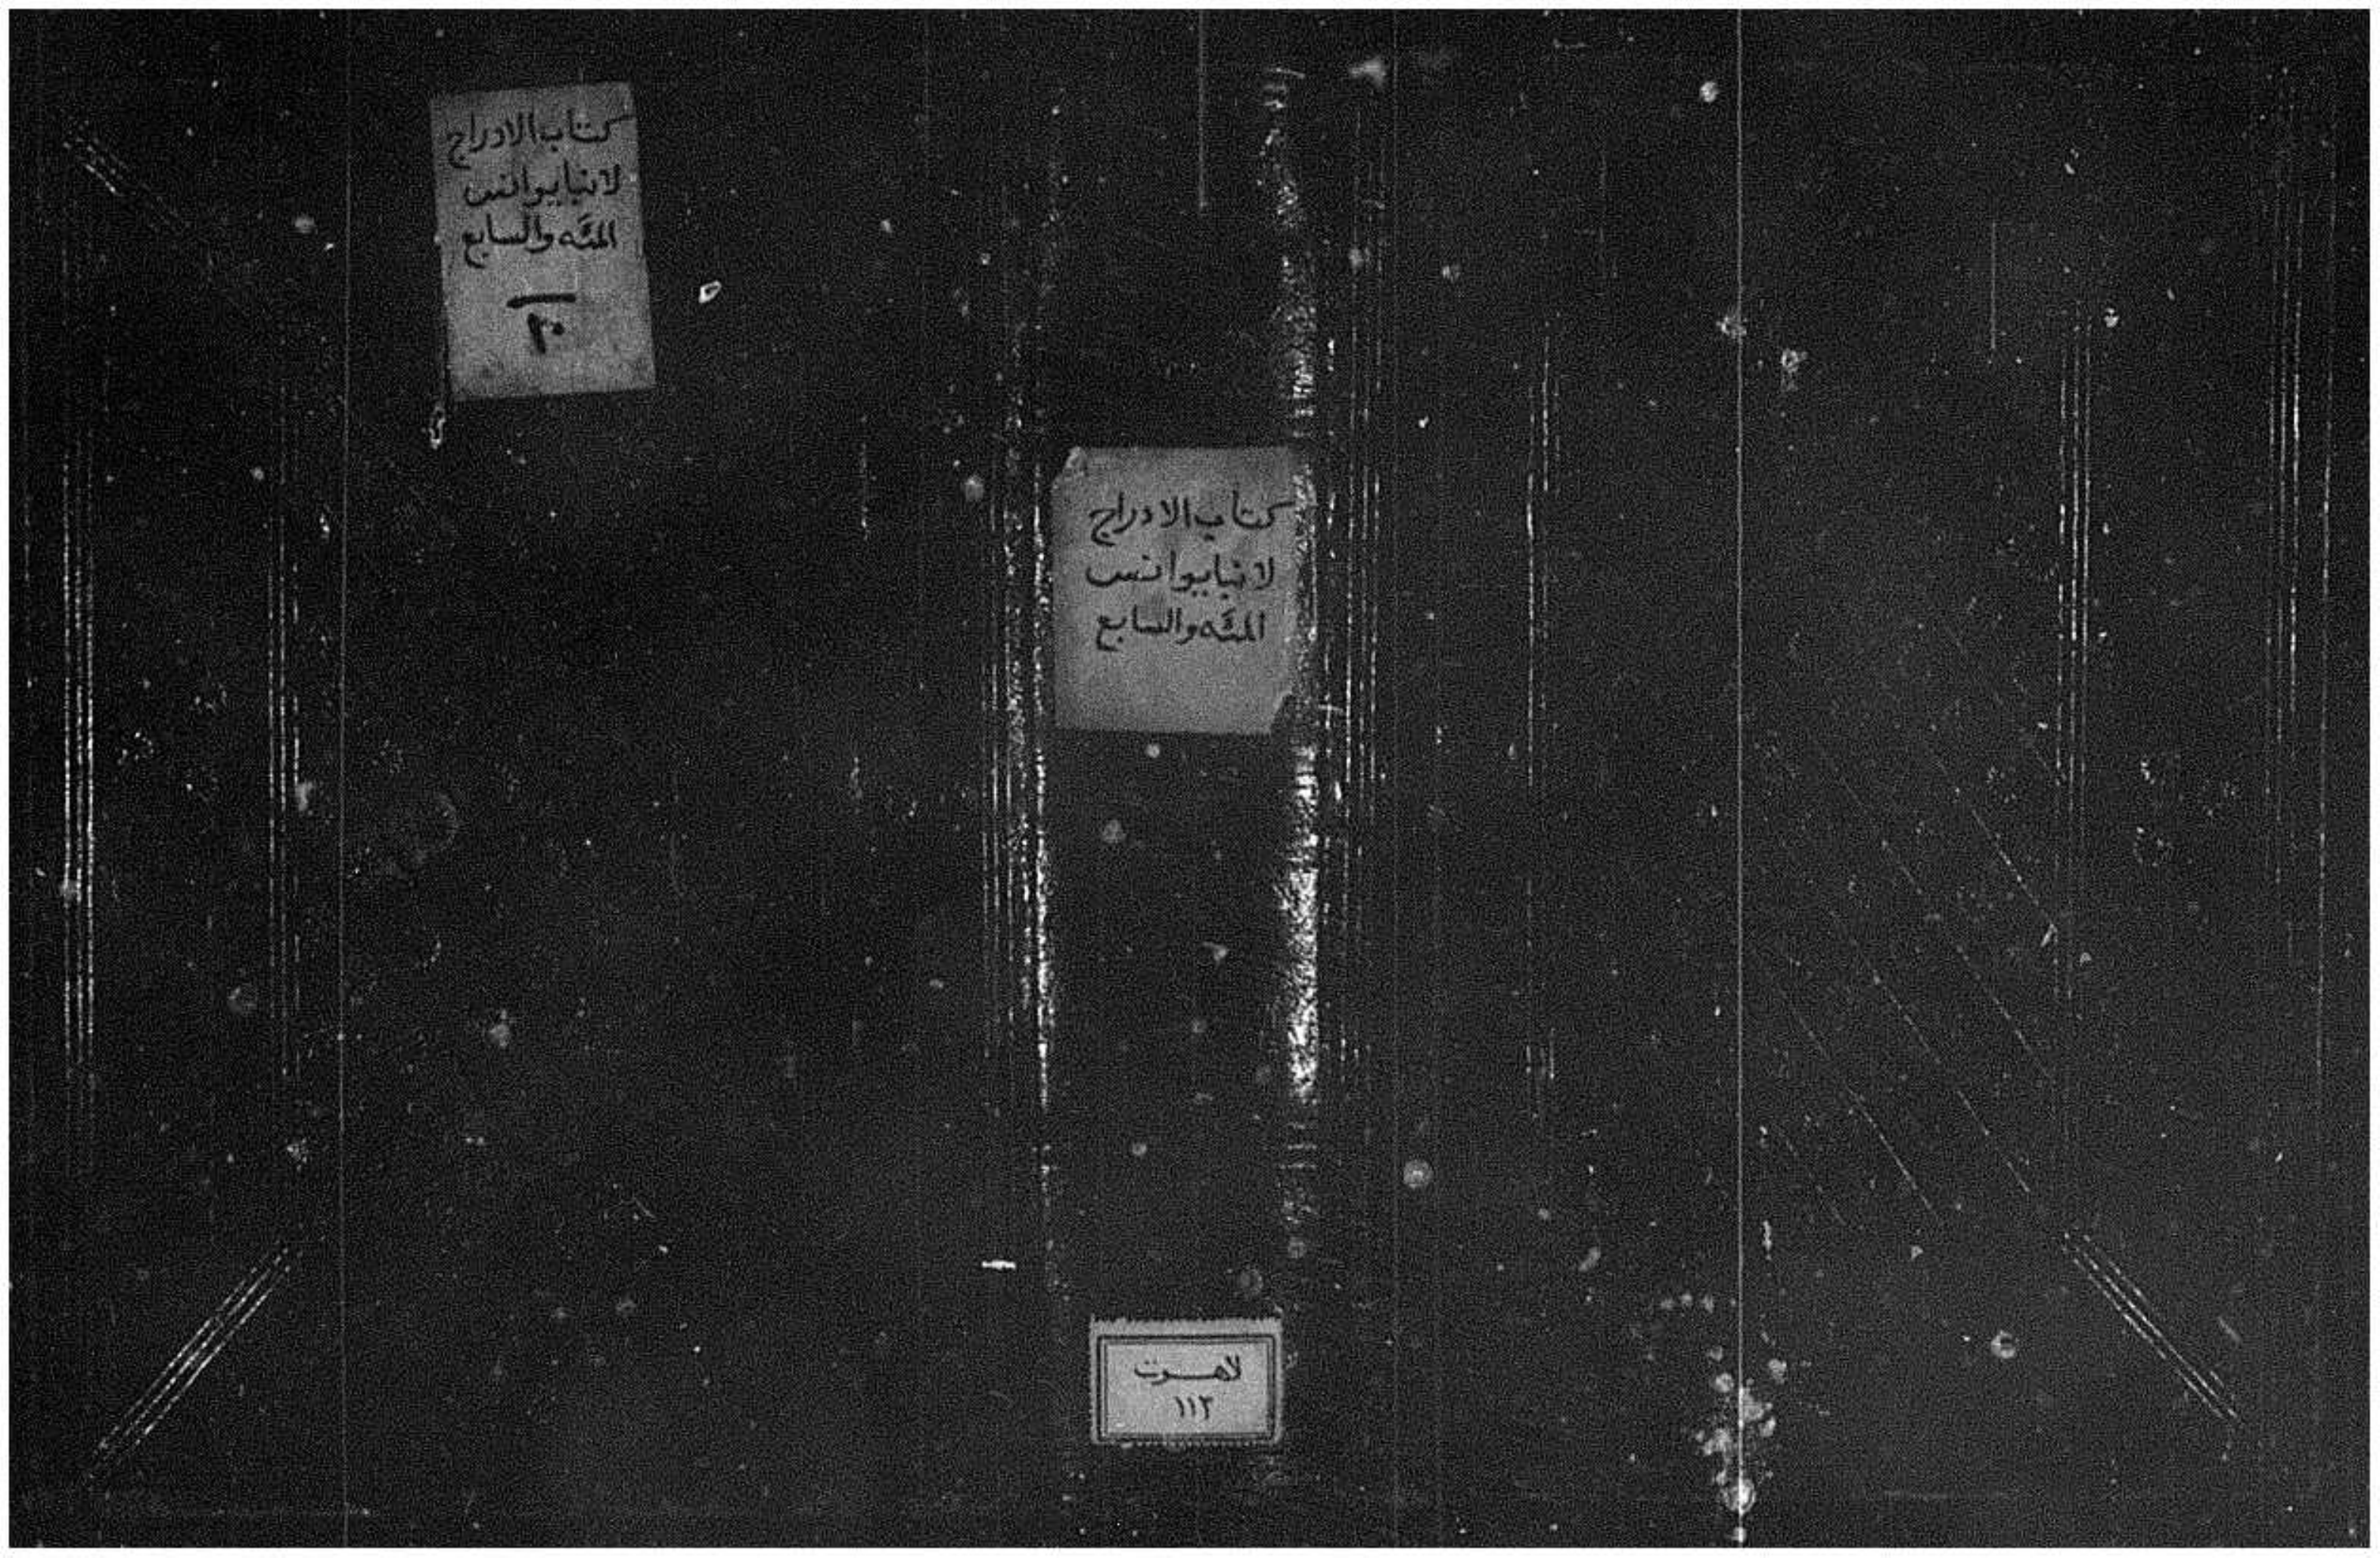 كتاب الادراج
لانبا يوانس
المئه والسابع
كتاب الادراج
لانبا يوانس
المئه والسابع
لاهوت
١١٢